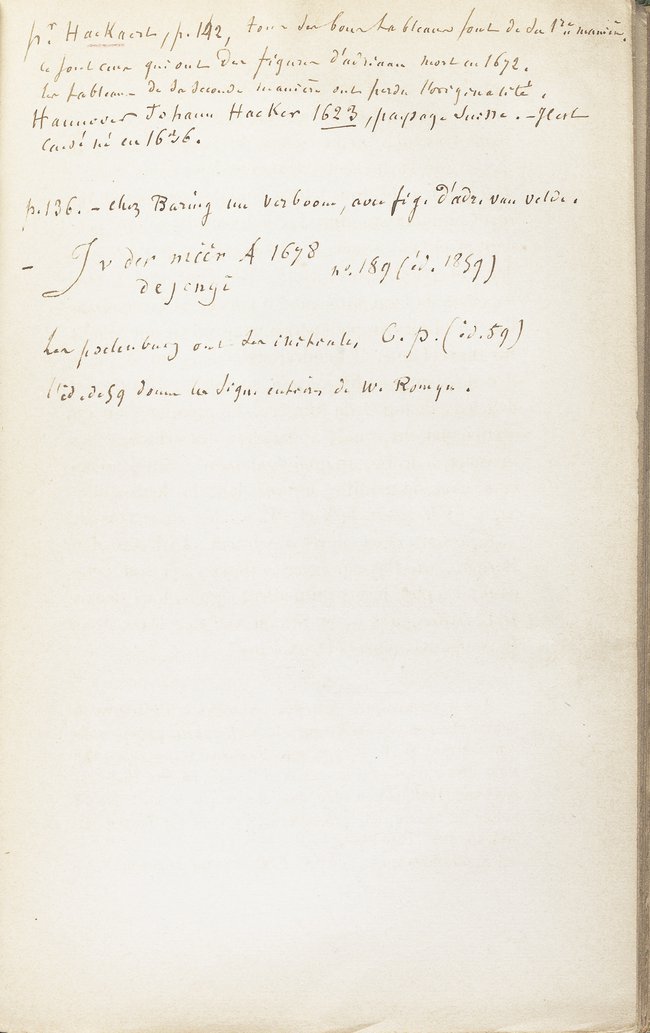 pr. Hackaert, p. 142, tous ses bons tableaux sont de sa 1re manière.
ce sont ceux qui ont des figures d'adriaan mort en 1672.
les tableaux de sa seconde manière ont perdu l'originalité.
Hannover Johann Hacker 1623, paysage Suisse. - Il est
né en 16
p. 136. - chez Baring un verboom, avec fig. d'adr. van velde.
- J v der meer A 1678 no. 189 (éd. 1859)
de jonge
les poelenburg ont les initiales C. p. (éd. 59)
l'éd. de 59 donne la sign. entière de W. Romyn.